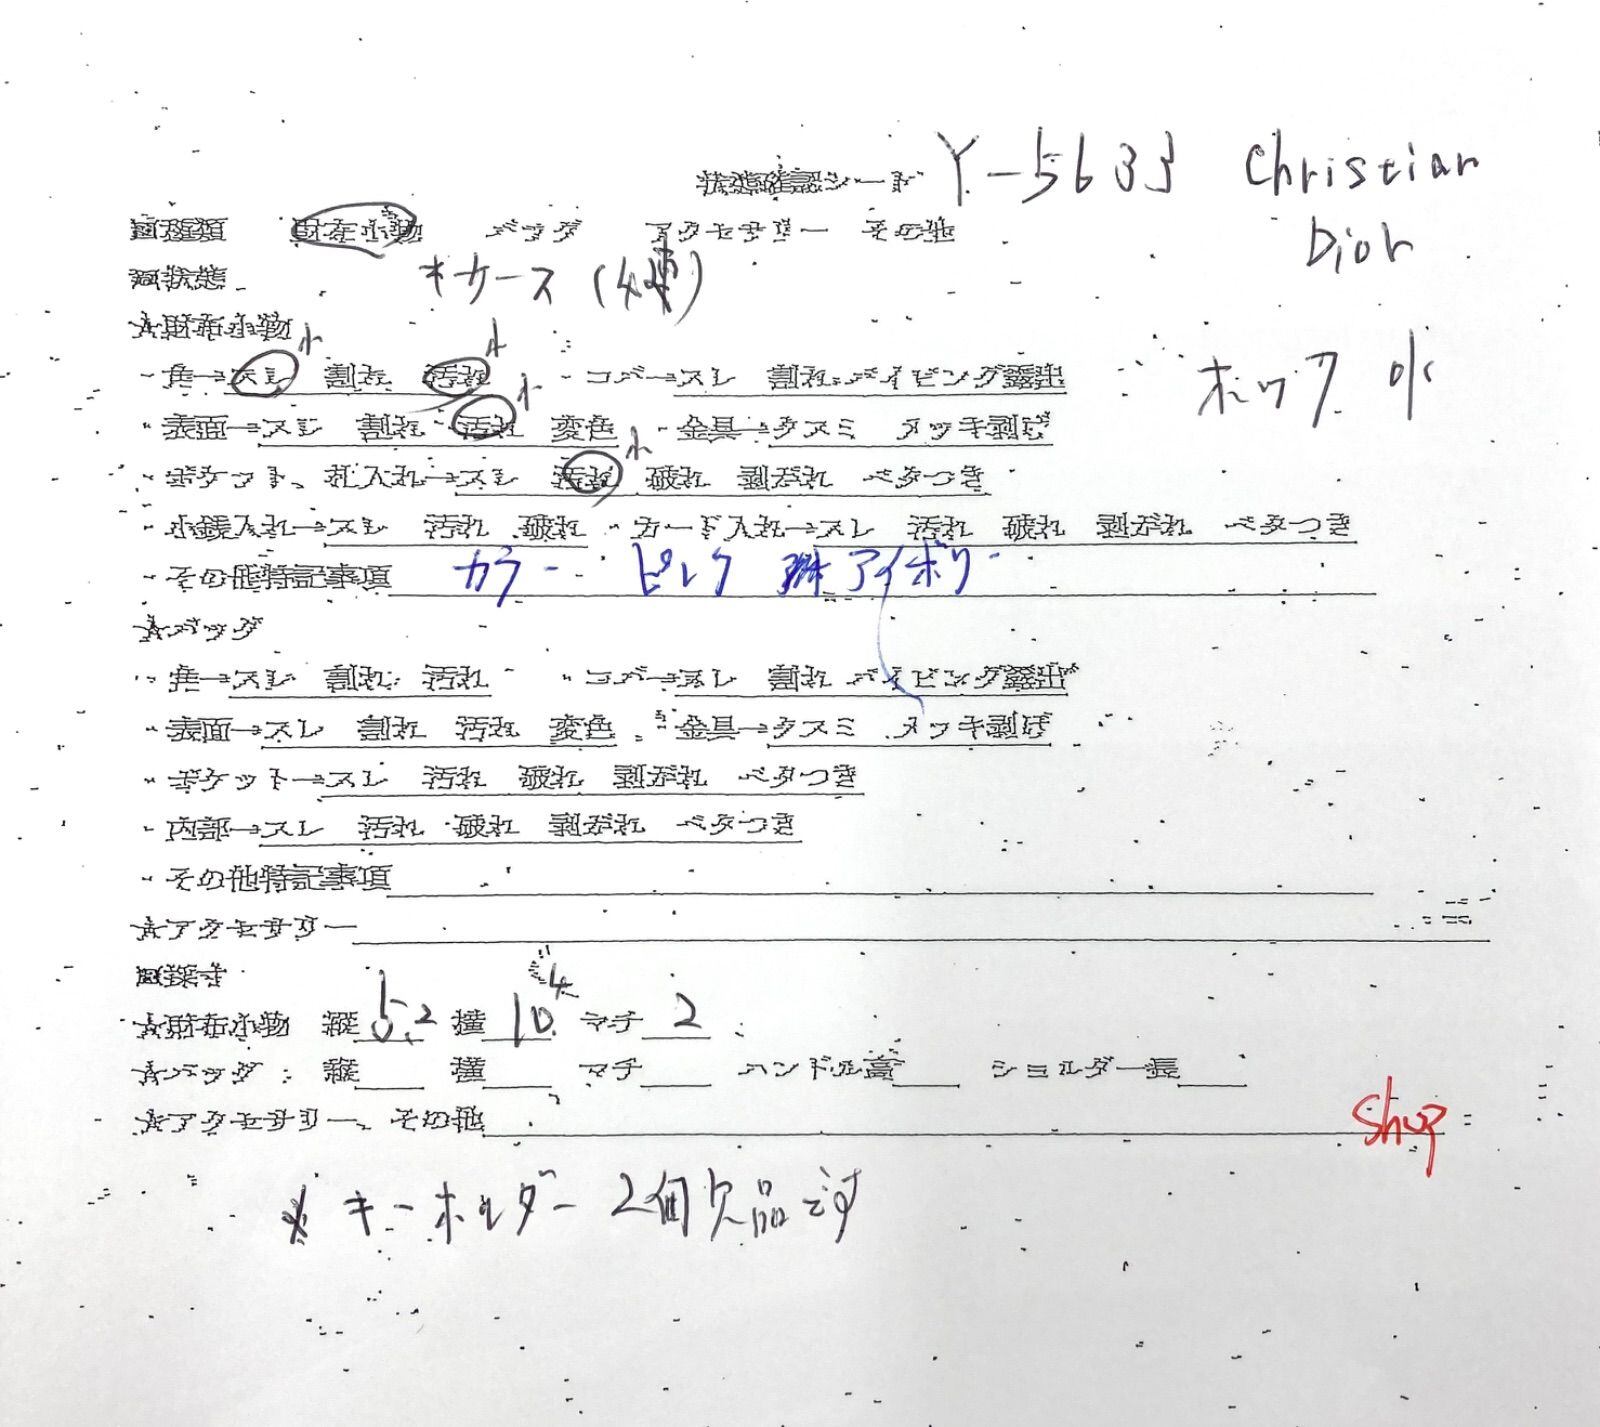 状態確認シート Y-5633 Christian Dior
□種類 財布小物 バッグ アクセサリー その他
□状態 キケース (4連)
☆財布小物
・角→スレ 小 割れ 汚れ 小 ・コバ→スレ 割れ パイピング露出
ホック OK
・表面→スレ 割れ 汚れ 小 変色 ・金具→クスミ メッキ剥げ
・ポケット、札入れ→スレ 汚れ 小 破れ 剥がれ ベタつき
・小銭入れ→スレ 汚れ 破れ ・カード入れ→スレ 汚れ 破れ 剥がれ ベタつき
・その他特記事項 カラー ピンク アイボリー
☆バッグ
・角→スレ 割れ 汚れ ・コバ→スレ 割れ パイピング露出
・表面→スレ 割れ 汚れ 変色 ・金具→クスミ メッキ剥げ
・ポケット→スレ 汚れ 破れ 剥がれ ベタつき
・内部→スレ 汚れ 破れ 剥がれ ベタつき
・その他特記事項
☆アクセサリー
□採寸
☆財布小物 縦 5.2 横 10.4 マチ 2
☆バッグ 縦 横 マチ ハンドル高 ショルダー長
☆アクセサリー、その他
Shop
※キーホルダー 2個欠品です